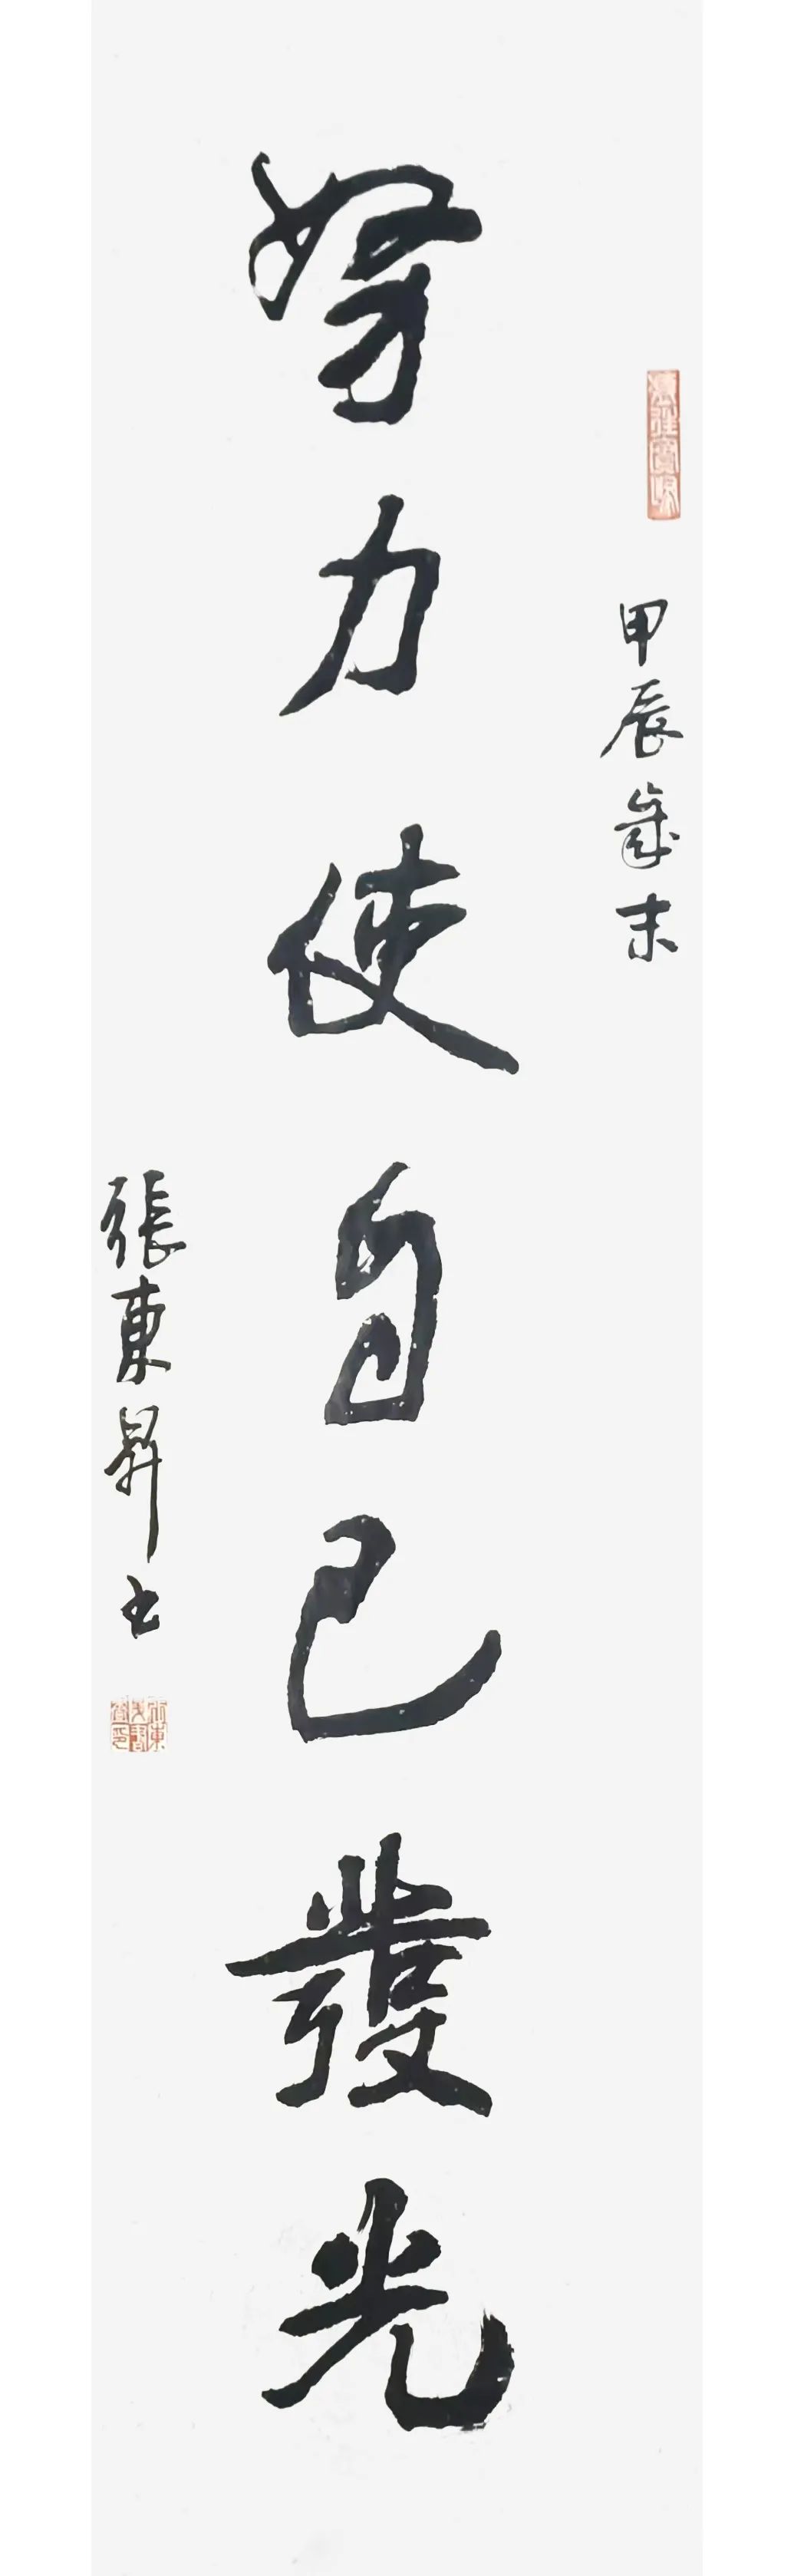 甲辰歲末
努力使自己發光
張東昇书